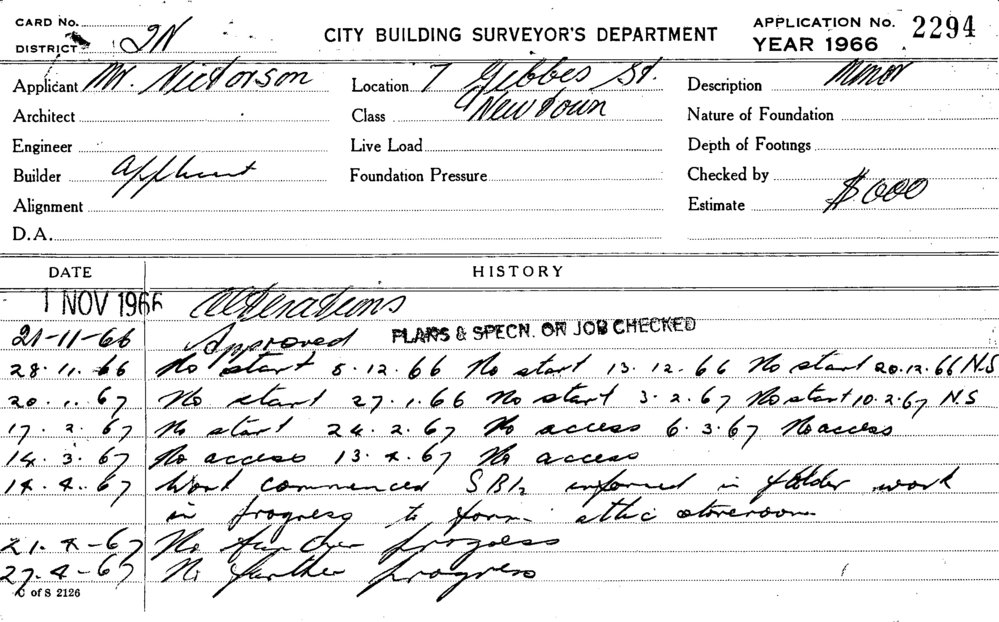 CARD No.
DISTRICT 2N
CITY BUILDING SURVEYOR'S DEPARTMENT
APPLICATION No. 2294
YEAR 1966
Applicant Mr. Victorson
Location 7 Gibbes St.
Newtown
Description Minor
Architect
Class
Nature of Foundation
Engineer
Live Load
Depth of Footings
Builder Applicant
Foundation Pressure
Checked by
Alignment
Estimate $600
D.A.
DATE
HISTORY
1 NOV 1966 Alterations
21-11-66 Approved PLANS & SPECN. ON JOB CHECKED
28.11.66 No start 5.12.66 No start 13.12.66 No start 20.12.66 N.S
20.1.67 No start 27.1.66 No start 3.2.67 No start 10.2.67 N.S
17.2.67 No start 24.2.67 No access 6.3.67 No access
14.3.67 No access 13.4.67 No access
14.4.67 Work commenced informed in folder work
in progress to form attic storeroom
21.4-67 No further progress
27.4-67 No further progress
C of S 2126